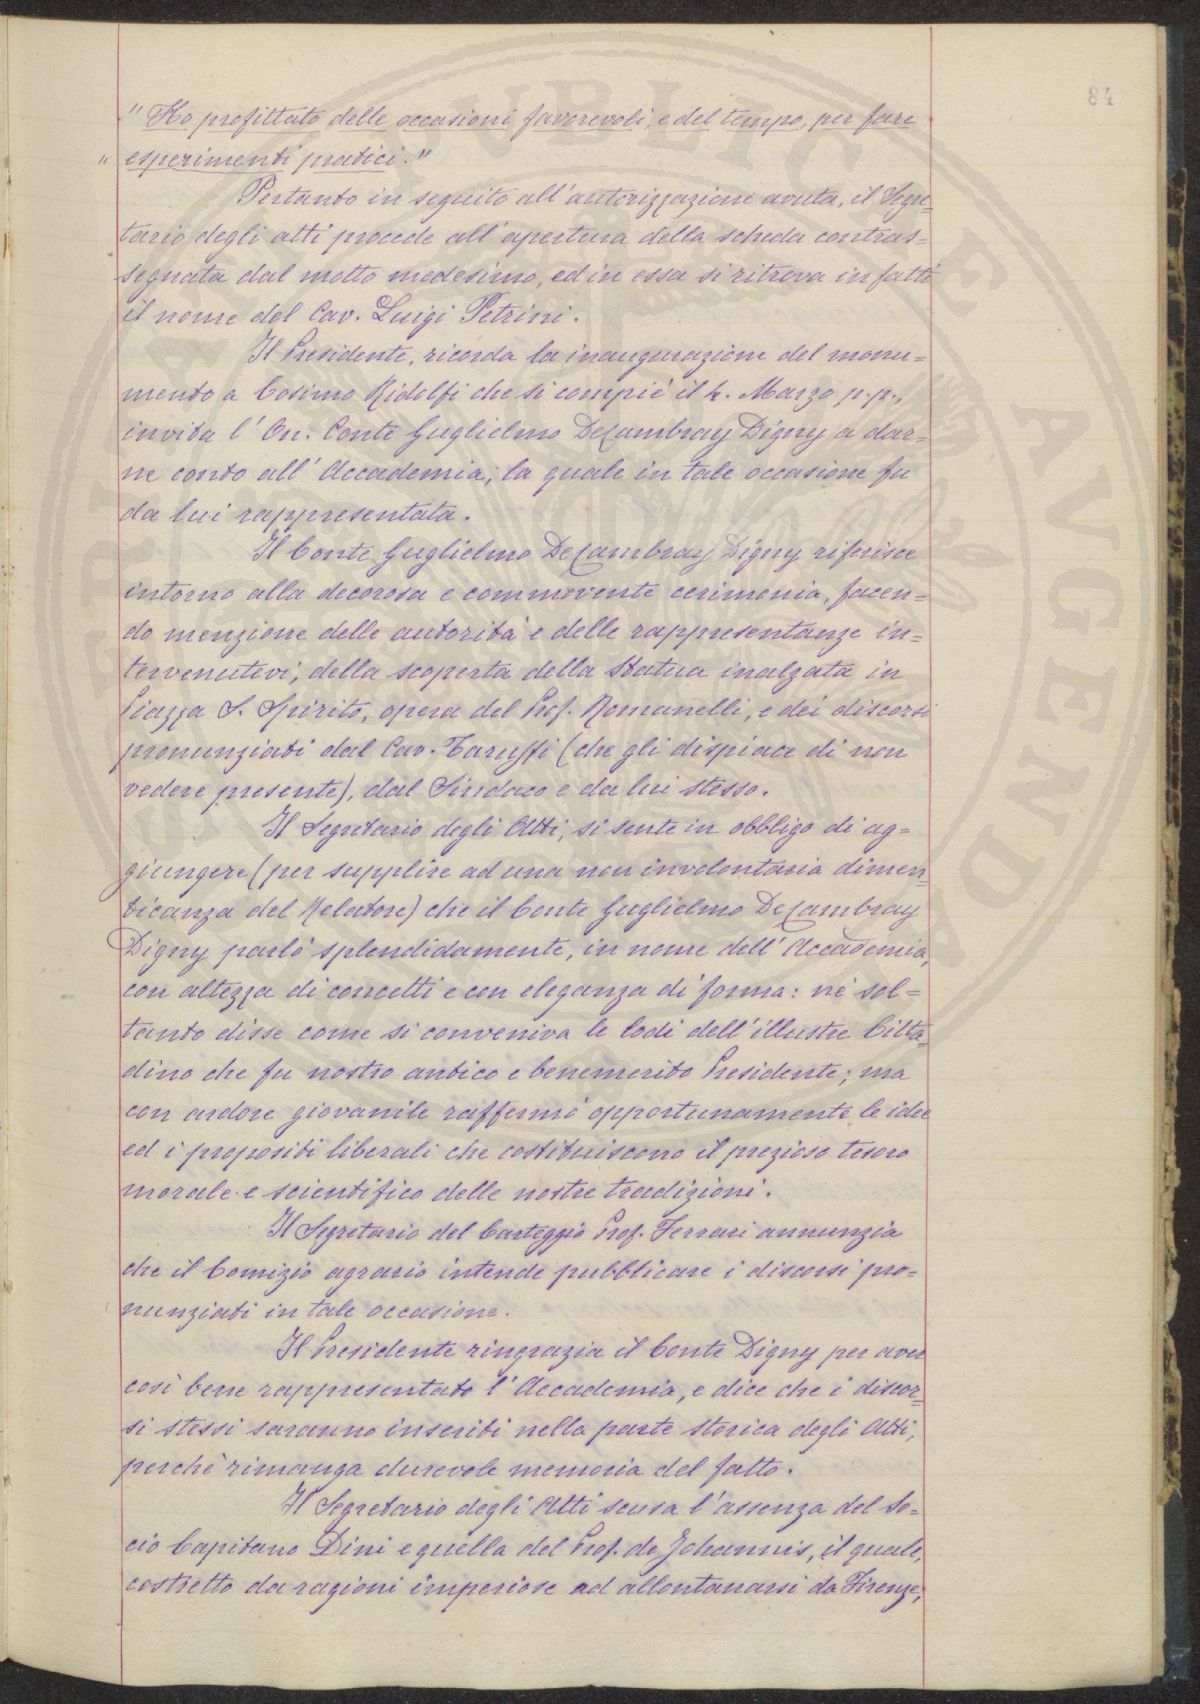 84
"Ho profittato delle occasioni favorevoli, e del tempo, per fare
" esperimenti pratici."
Pertanto in seguito all'autorizzazione avuta, il Segre=
tario degli atti procede all'apertura della scheda contras=
segnata dal motto medesimo, ed in essa si ritrova infatti
il nome del Cav. Luigi Petrini.
Il Presidente, ricorda la inaugurazione del monu=
mento a Cosimo Ridolfi che si compié il 4. Marzo p.p.,
invita l'On. Conte Guglielmo DeCambray Digny a dar=
ne conto all'Accademia; la quale in tale occasione fu
da lui rappresentata.
Il Conte Guglielmo DeCambray Digny riferisce
intorno alla decorosa e commovente cerimonia, facen=
do menzione delle autorità e delle rappresentanze in=
tervenutevi; della scoperta della statua inalzata in
Piazza S. Spirito, opera del Prof. Romanelli, e dei discorsi
pronunziati dal Cav. Taruffi (che gli dispiace di non
vedere presente), dal Sindaco e da lui stesso.
Il Segretario degli Atti, si sente in obbligo di ag=
giungere (per supplire ad una non involontaria dimen=
ticanza del Relatore) che il Conte Guglielmo DeCambray
Digny parlò splendidamente, in nome dell'Accademia,
con altezza di concetti e con eleganza di forma: né sol=
tanto disse come si conveniva le lodi dell'illustre Citta=
dino che fu nostro antico e benemerito Presidente; ma
con ardore giovanile raffermò opportunamente le idee
ed i propositi liberali che costituiscono il prezioso tesoro
morale e scientifico delle nostre tradizioni.
Il Segretario del Carteggio Prof. Ferrari annunzia
che il Comizio agrario intende pubblicare i discorsi pro=
nunziati in tale occasione.
Il Presidente ringrazia il Conte Digny per aver
così bene rappresentato l'Accademia, e dice che i discor=
si stessi saranno inseriti nella parte storica degli Atti,
perché rimanga durevole memoria del fatto.
Il Segretario degli Atti scusa l'assenza del So=
cio Capitano Dini e quella del Prof. de Johannis, il quale,
costretto da ragioni imperiose ad allontanarsi da Firenze,